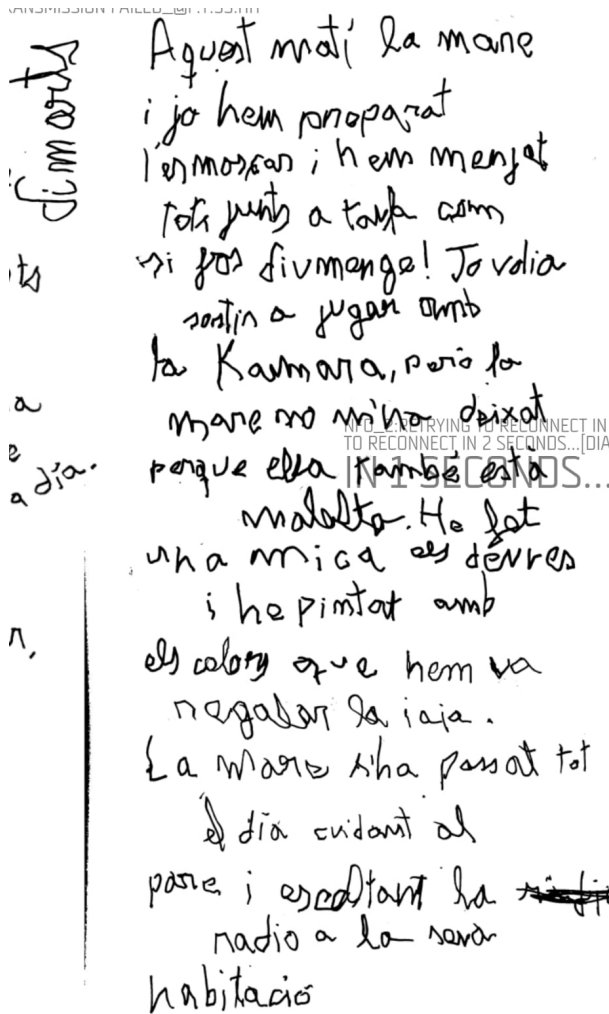 dimarts
Aquest matí la mare
i jo hem preparat
l'esmorzar i hem menjat
tots junts a taula com
si fos diumenge! Jo volia
sortir a jugar amb
la Kaimara, però la
mare no m'ha deixat
perque ella també està
malalta. He fet
una mica els deures
i he pintat amb
els colors que hem va
regalar la iaia.
La mare s'ha passat tot
el dia cuidant al
pare i escoltant la
radio a la seva
habitació
ts
a
e
a día.
r.
RETRYING TO RECONNECT IN
TO RECONNECT IN 2 SECONDS...[DIA
IN 1 SECONDS...